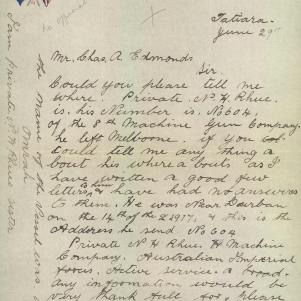 Tatiara.
June 29th
Mr. Chas. A. Edmonds
Sir.
Could you please tell me
where. Private N. H. Rhue.
is. his Number is. No 604.
of the 8th Machine Gun Company.
he left Melboone. if you
could tell me any thing a
bout his where a bouts as I
have written a good few
letters to him & have had no answers
to them. He was Near Durban
on the 14th of the 2 1917, & this is the
Address he send No 604
Private N H Rhue. Machine
Company. Australian Imperial
forces. Active service. a broad.
Any information would be
very thank full for. please
the Name of the Vessel was
I am private N H Rhues sister